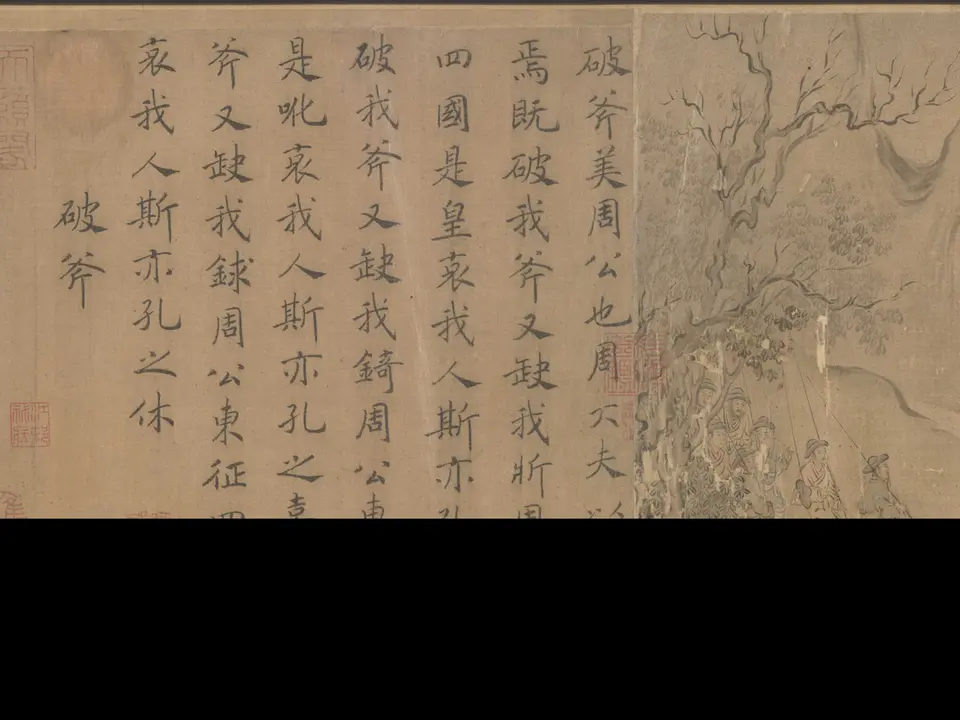 破斧美周公也周大夫以
焉既破我斧又缺我斨周
四國是皇哀我人斯亦孔
破我斧又缺我錡周公東
是吪哀我人斯亦孔之嘉
斧又缺我銶周公東征四
哀我人斯亦孔之休
破斧